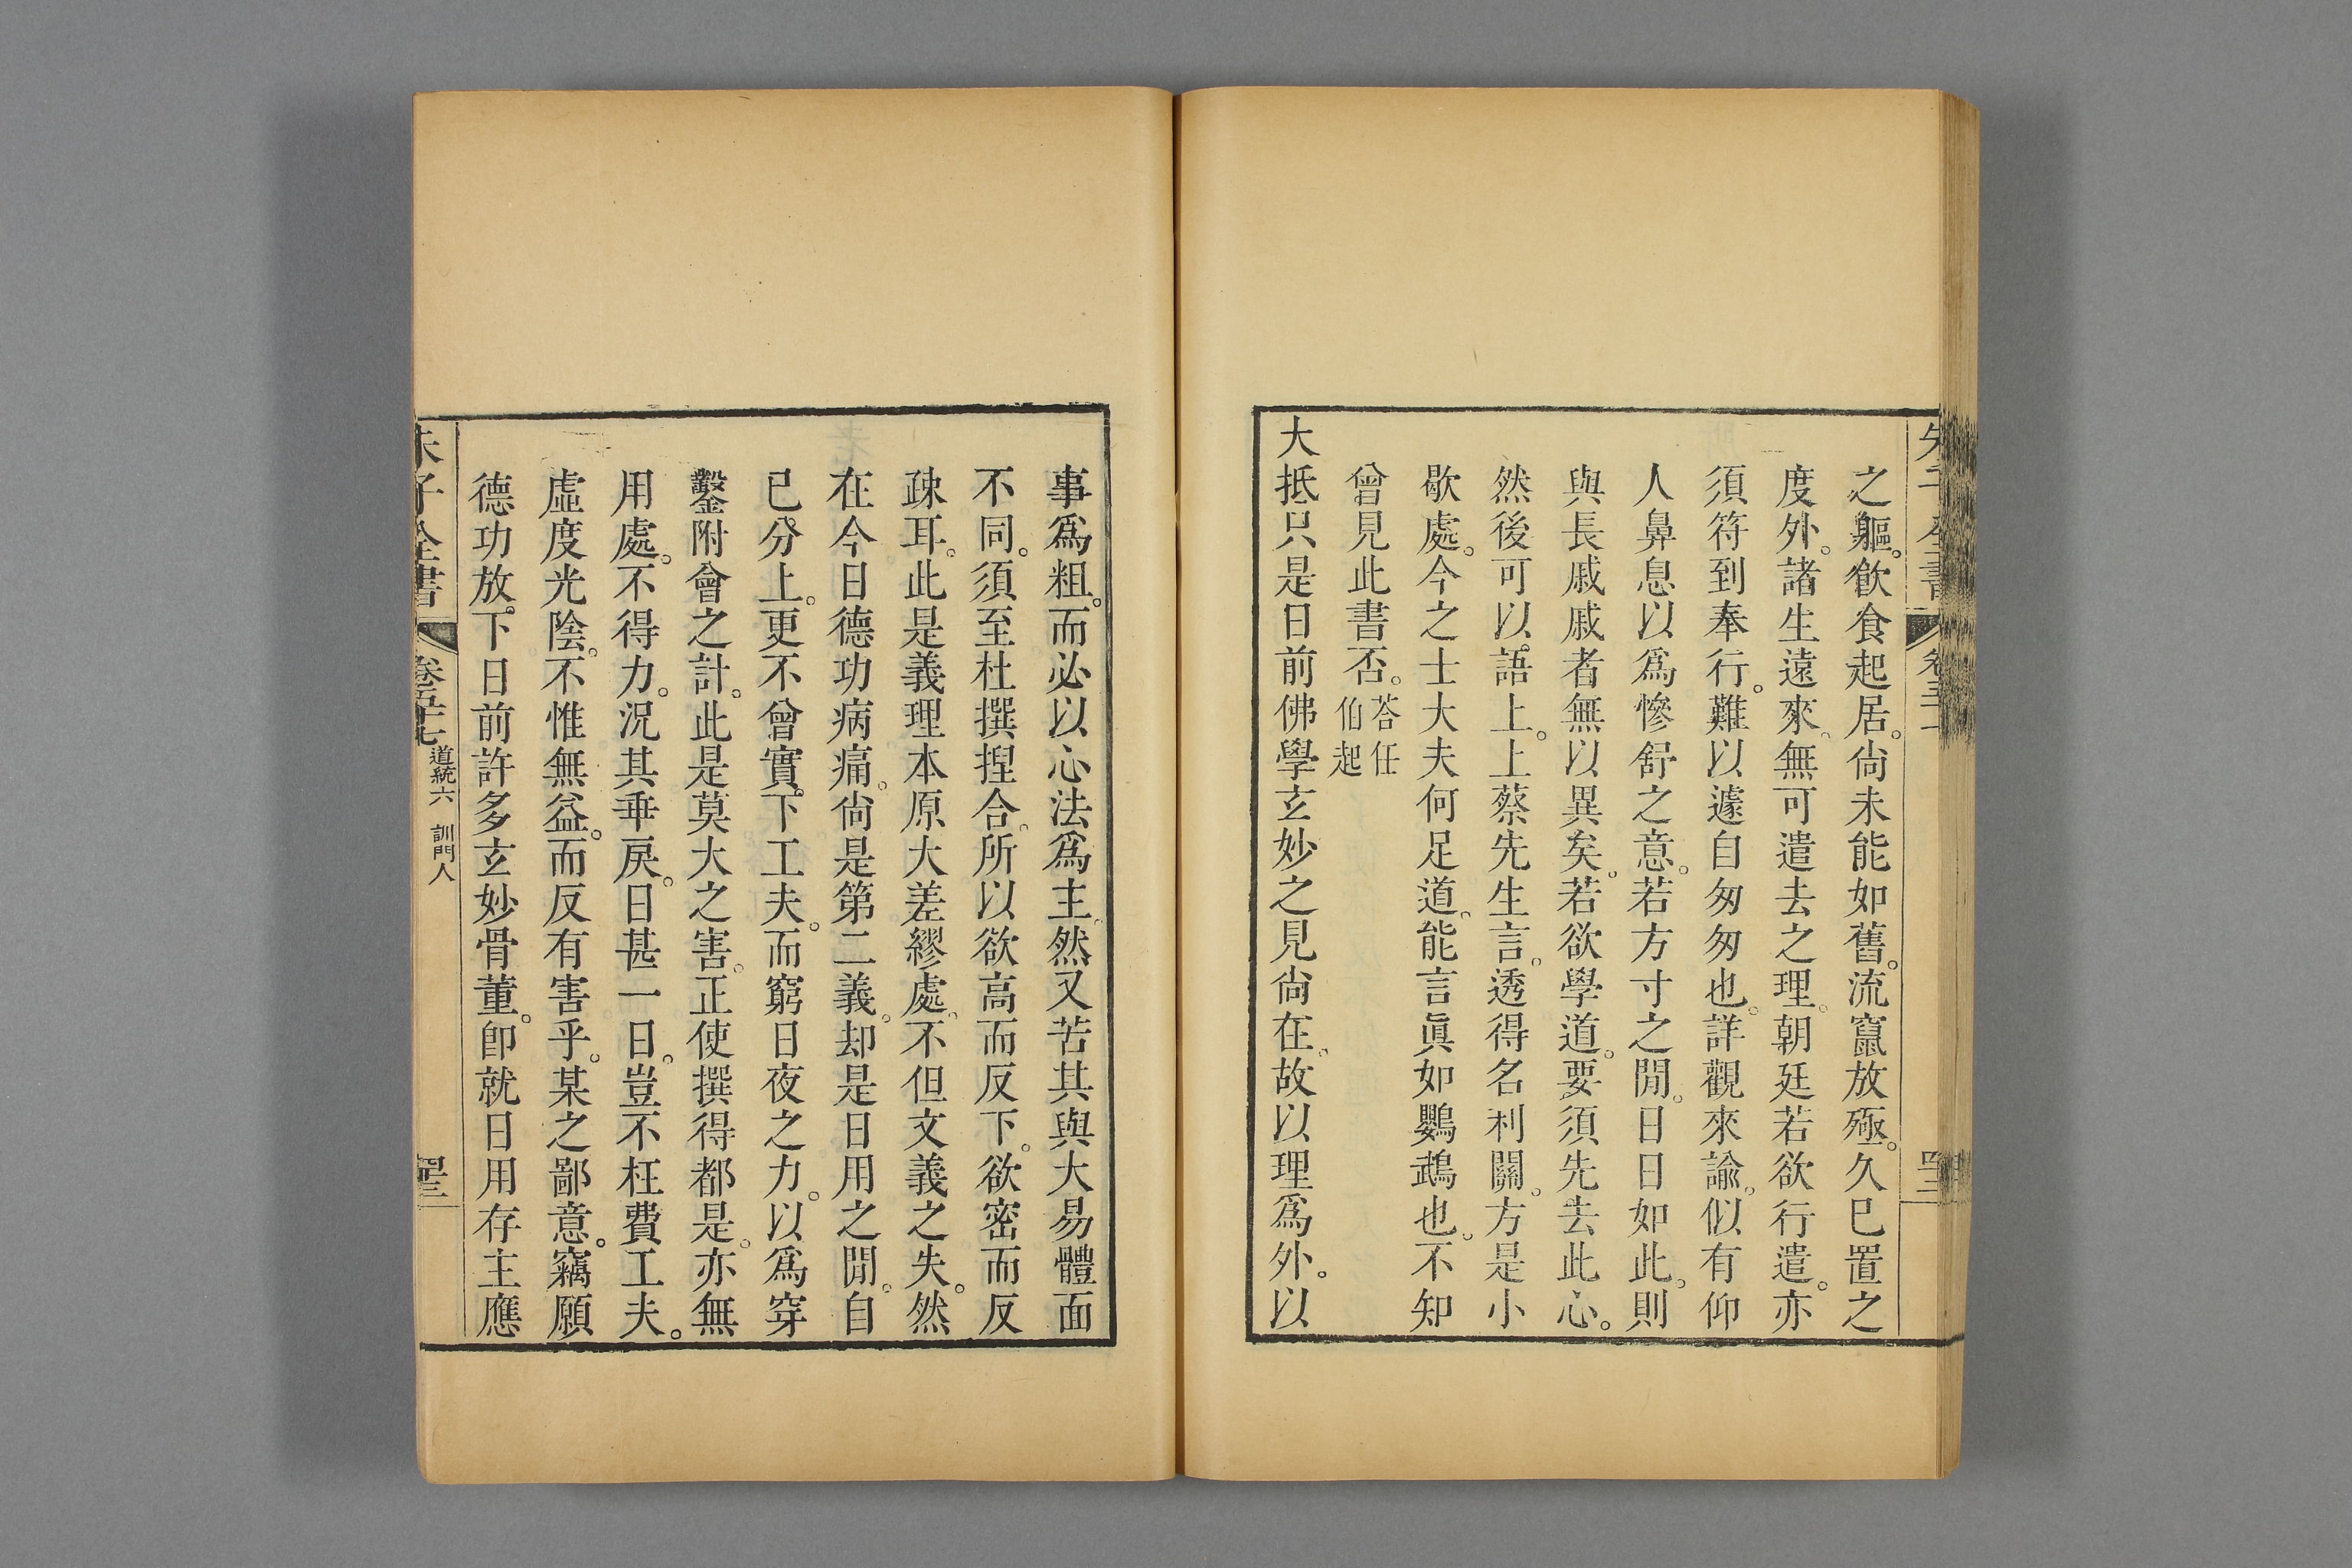 之軀。飲食起居。尙未能如舊。流竄放殛。久已置之
度外。諸生遠來。無可遣去之理。朝廷若欲行遣。亦
須符到奉行。難以遽自匆匆也。詳觀來諭。似有仰
人鼻息以爲慘舒之意。若方寸之閒。日日如此。則
與長戚戚者無以異矣。若欲學道。要須先去此心。
然後可以語上。上蔡先生言。透得名利關。方是小
歇處。今之士大夫何足道。能言眞如鸚鵡也。不知
曾見此書否。答任伯起
大抵只是日前佛學玄妙之見尙在。故以理爲外。以
事爲粗。而必以心法爲主。然又苦其與大易體面
不同。須至杜撰捏合。所以欲高而反下。欲密而反
疎耳。此是義理本原大差繆處。不但文義之失。然
在今日德功病痛。尙是第二義。却是日用之閒。自
已分上。更不曾實下工夫。而窮日夜之力。以爲穿
鑿附會之計。此是莫大之害。正使撰得都是。亦無
用處。不得力。況其乖戾。日甚一日。豈不枉費工夫。
虛度光陰。不惟無益。而反有害乎。某之鄙意。竊願
德功放下日前許多玄妙骨董。卽就日用存主應
朱子全書 卷五十七 道統六 訓門人 四三